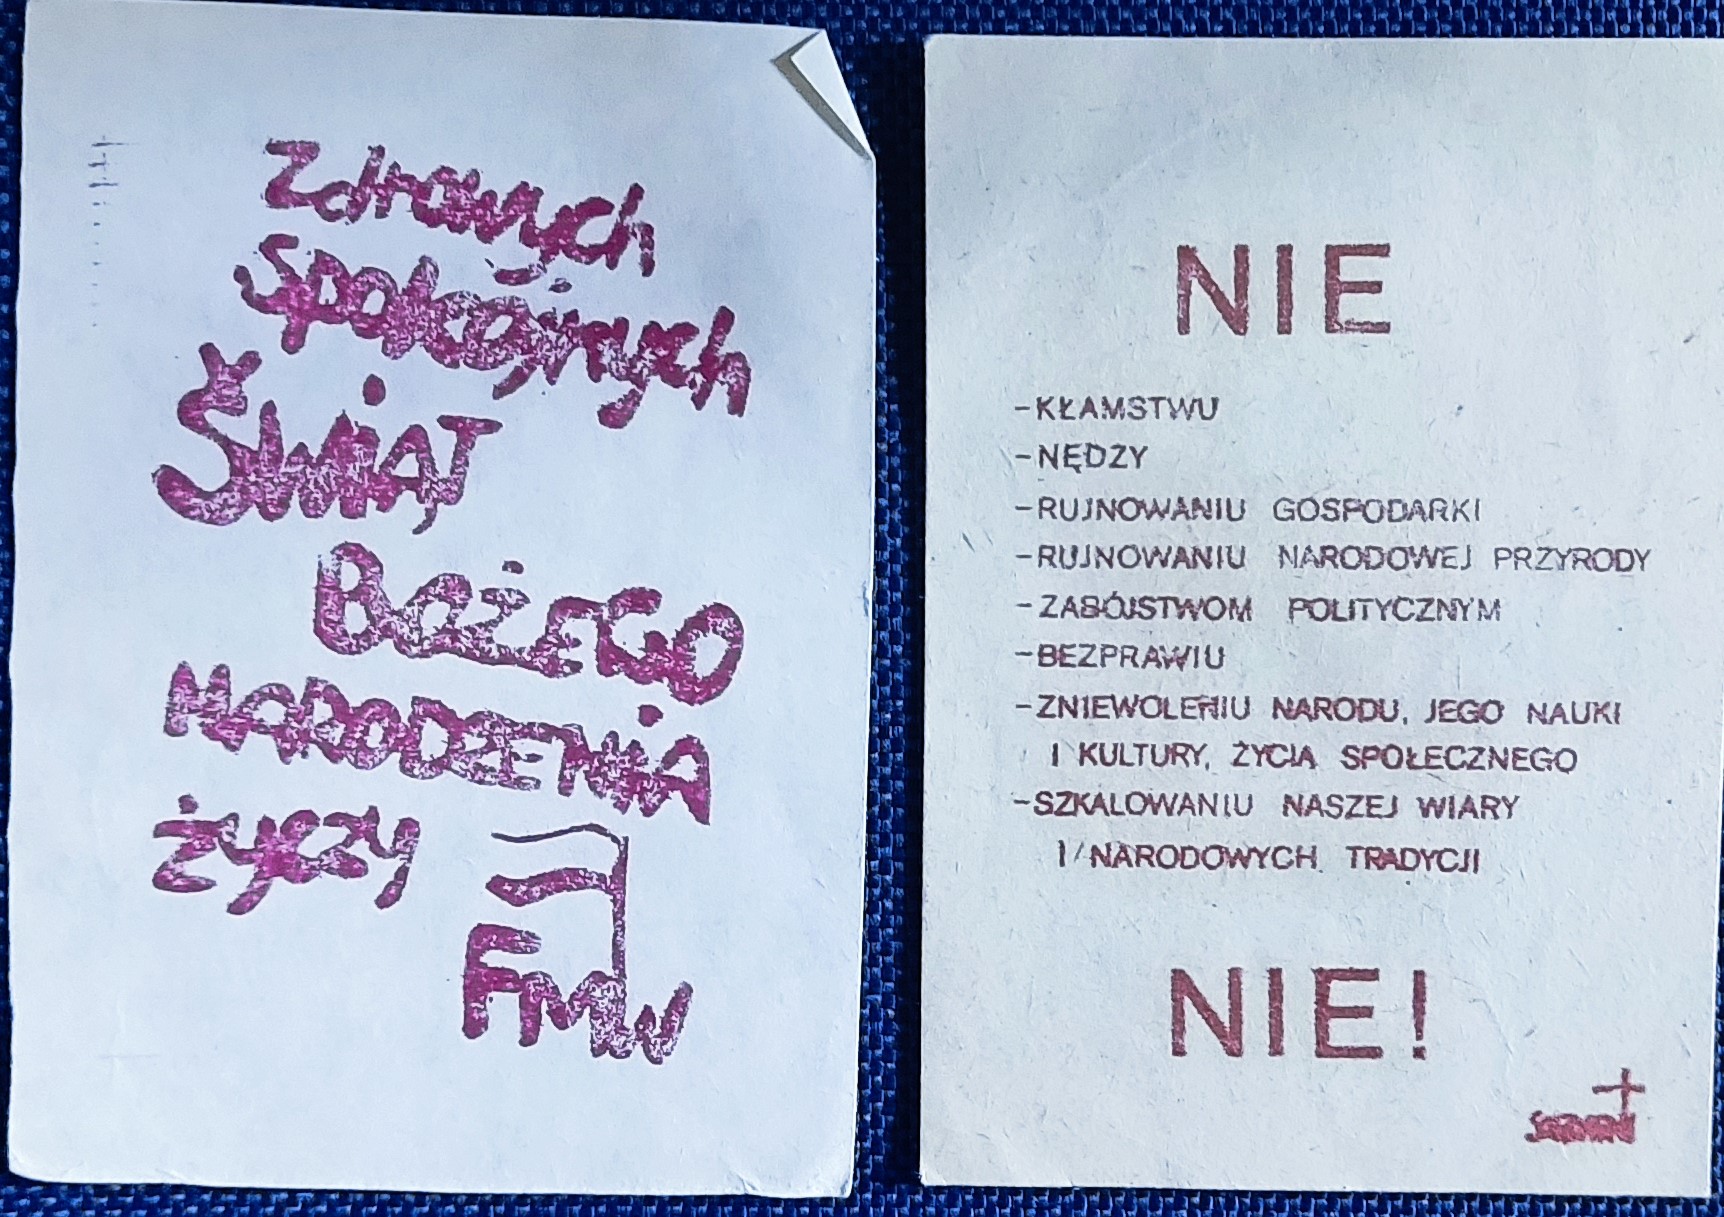 Zdrowych
spokojnych
Świąt
Bożego
NARODZENIA
życzy
FMW
NIE
-KŁAMSTWU
-NĘDZY
-RUJNOWANIU GOSPODARKI
-RUJNOWANIU NARODOWEJ PRZYRODY
-ZABÓJSTWOM POLITYCZNYM
-BEZPRAWIU
-ZNIEWOLENIU NARODU, JEGO NAUKI
I KULTURY, ŻYCIA SPOŁECZNEGO
-SZKALOWANIU NASZEJ WIARY
I NARODOWYCH TRADYCJI
NIE!